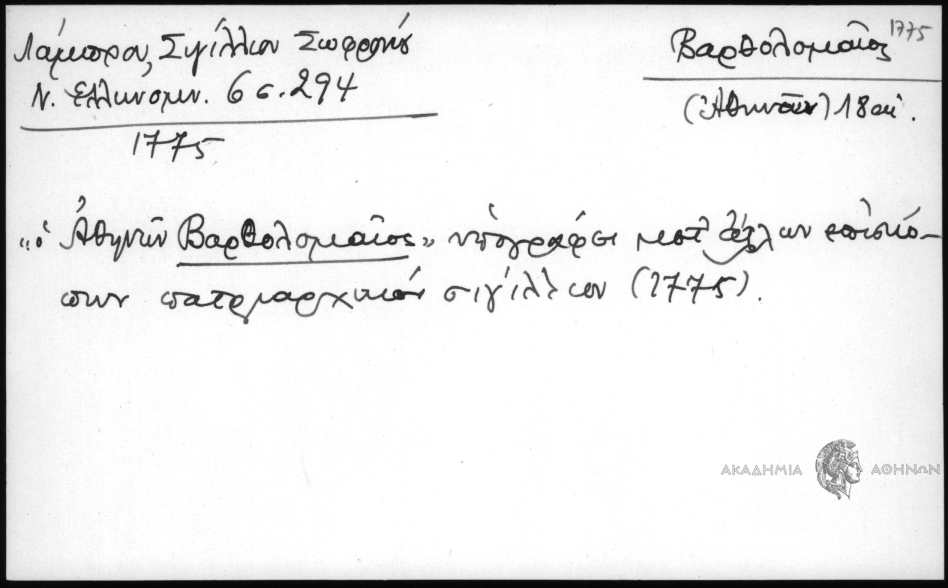 Λάμπρου, Σιγίλλιον Σωφρονίου
Ν. Ελληνομν. 6 σ. 294
1775
Βαρθολομαῖος 1775
(Ἀθηνῶν) 18 αἰ.
„ὁ Ἀθηνῶν Βαρθολομαῖος» ὑπογράφει μετ' ἄλλων ἐπισκό-
πων πατριαρχικόν σιγίλλιον (1775).
ΑΚΑΔΗΜΙΑ ΑΘΗΝΩΝ